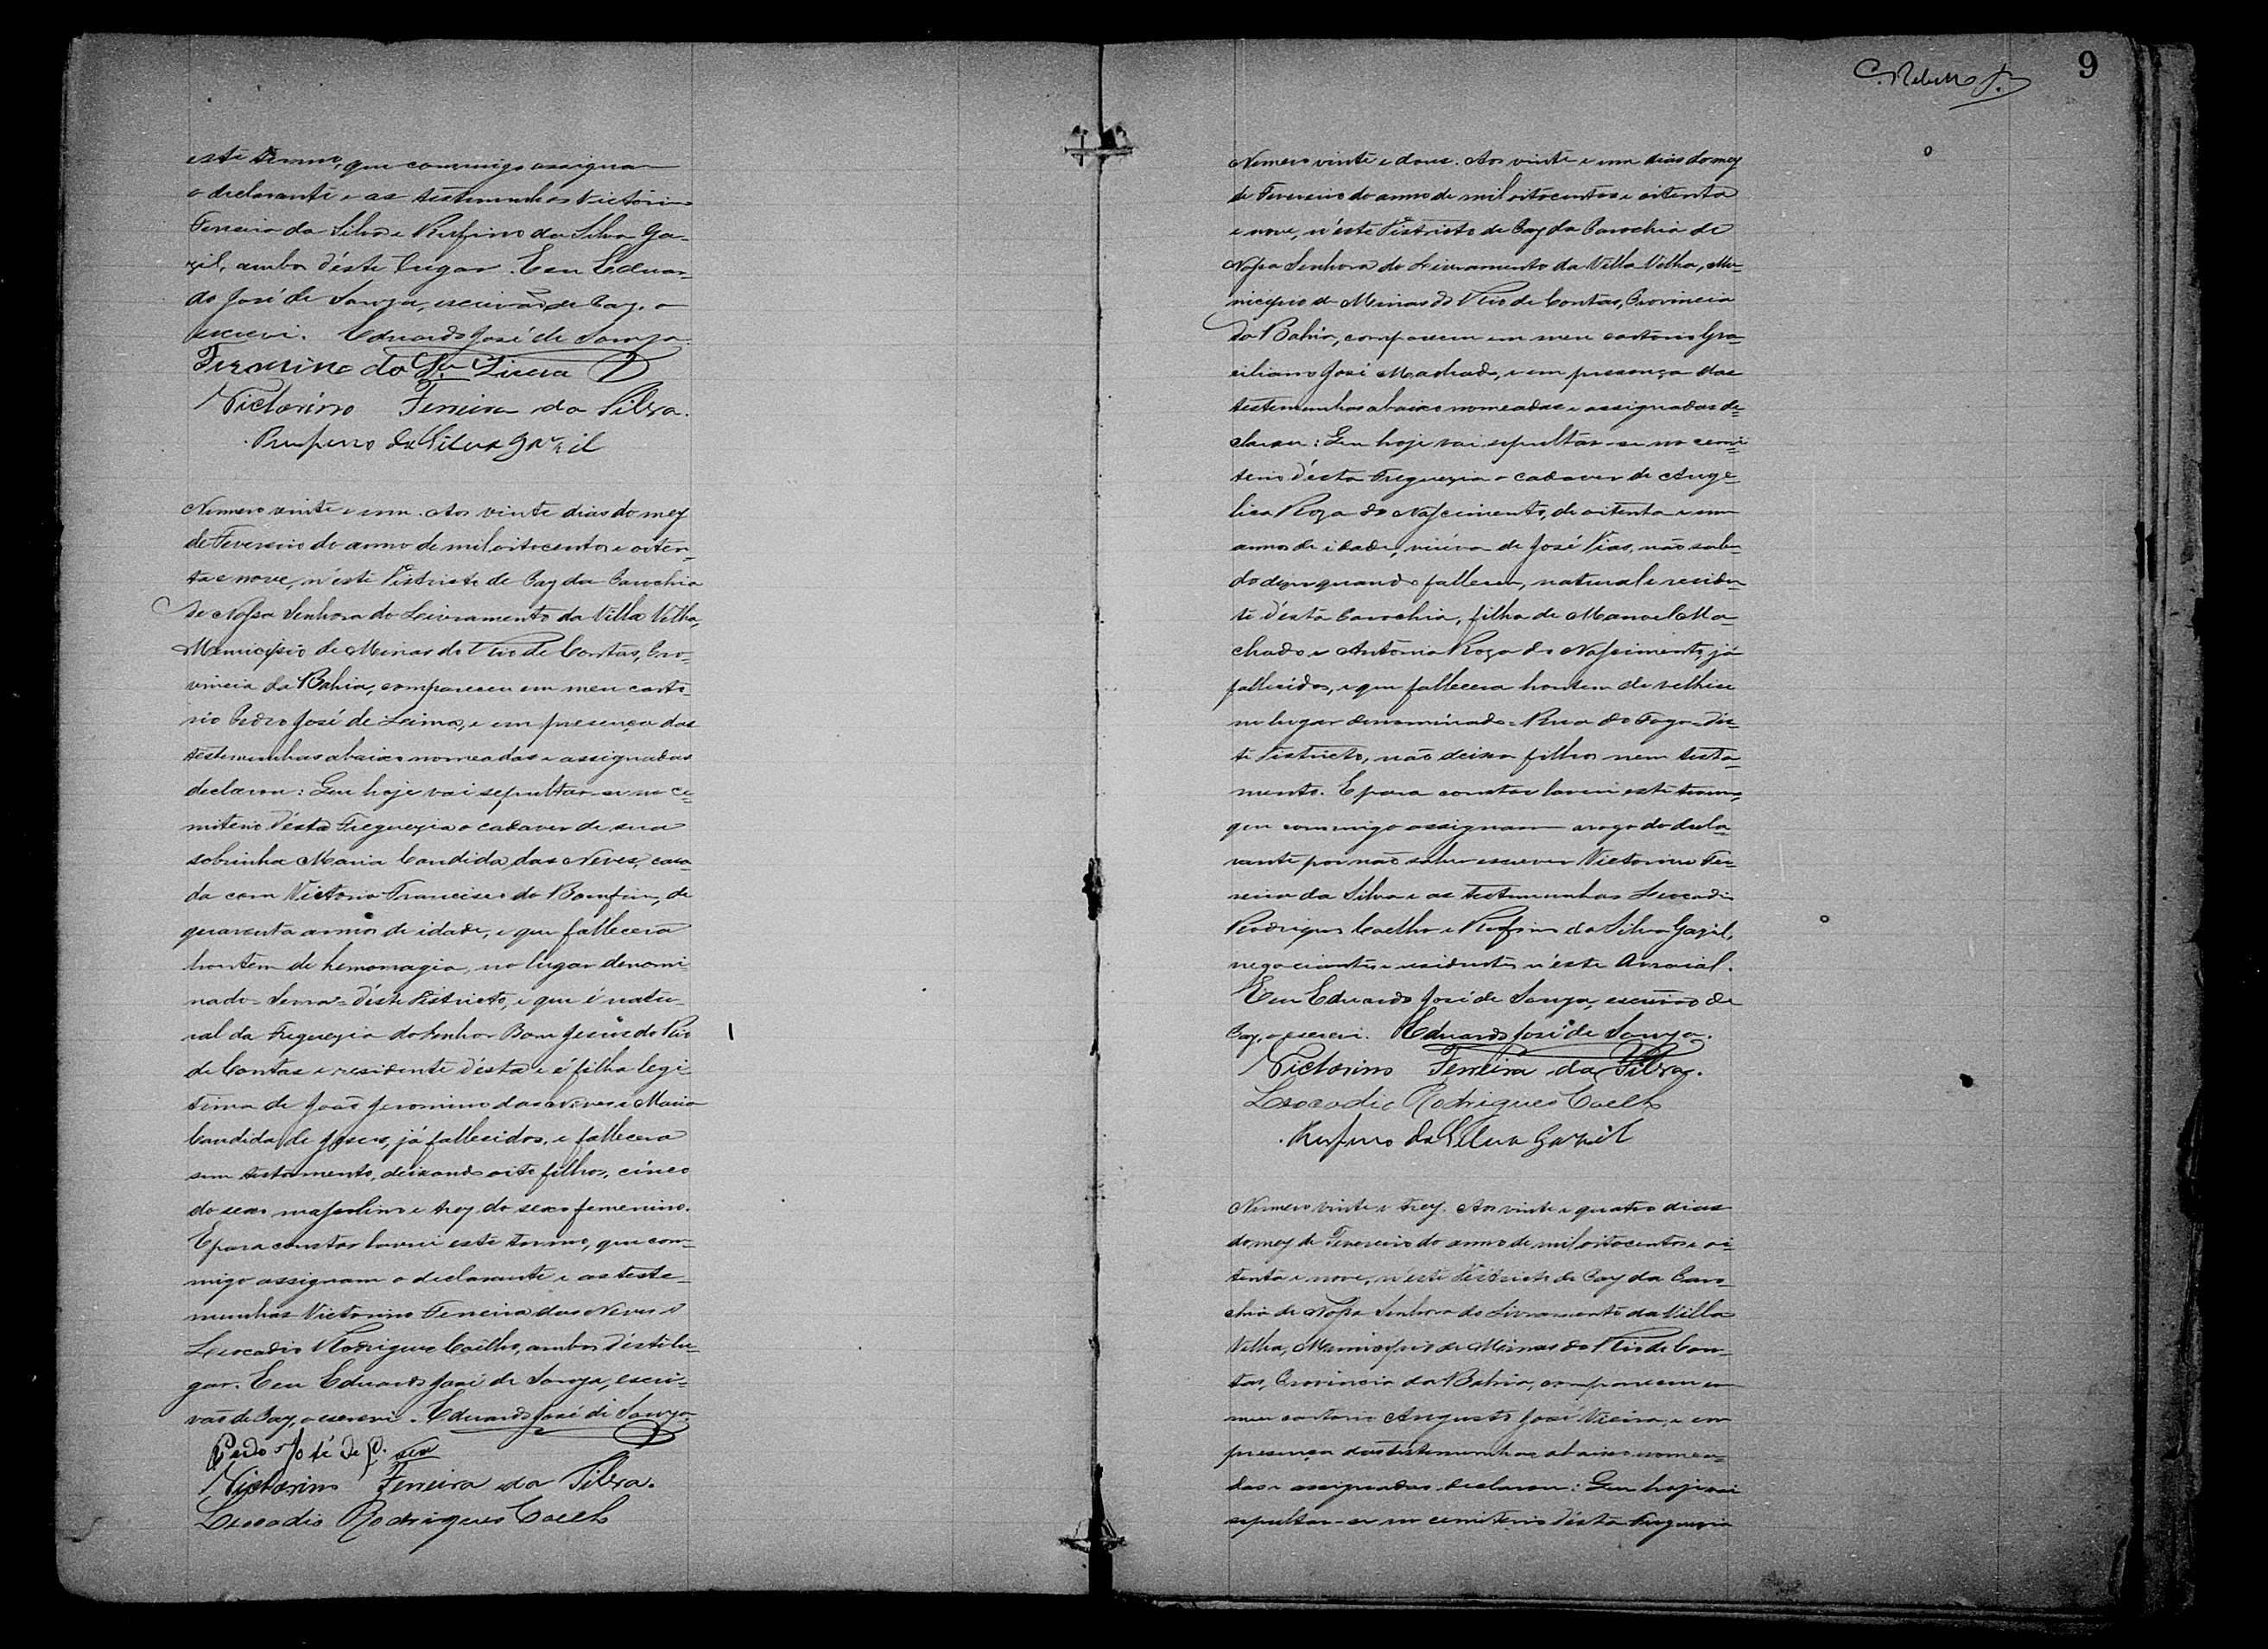 este termo, que commigo assignam
o declarante e as testemunhas Victorino
Ferreira da Silva e Rufino da Silva Ga-
zil, ambos d'este lugar. E eu Eduar-
do José de Souza, escrivão de Paz, o
escrevi. Eduardo José de Souza.
Firmino da
Victorino Ferreira da Silva.
Rufino da Silva Gazil
Numero vinte e um. Aos vinte dias do mez
de Fevereiro do anno de mil oitocentos e oiten-
ta e nove, n'este Districto de Paz da Parochia
de Nossa Senhora do Livramento da Villa Velha,
Municipio de Minas do Rio de Contas, Pro-
vincia da Bahia, compareceu em meu carto-
rio Pedro José de Lima, e em presença das
testemunhas abaixo nomeadas e assignadas
declarou: Que hoje vai sepultar-se no ce-
miterio d'esta Freguezia o cadaver de sua
sobrinha Maria Candida das Neves, casa-
da com Victorio Francisco do Bomfim, de
quarenta annos de idade, e que fallecera
hontem de hemorragia, no lugar denomi-
nado = Serra = d'este Districto, e que é natu-
ral da Freguezia do Senhor Bom Jesus do Rio
de Contas e residente d'esta e é filha legi-
tima de João Jeronimo das Neves e Maria
Candida de Jesus, já fallecidos, e fallecera
sem testamento, deixando oito filhos, cinco
do sexo masculino e trez do sexo femenino.
E para constar lavrei este termo, que com-
migo assignam o declarante e as teste-
munhas Victorino Ferreira das Neves e
Leocadio Rodrigues Coêlho, ambos d'este lu-
gar. E eu Eduardo José de Souza, escri-
vão de Paz, o escrevi. Eduardo José de Souza
Pedro José de
Victorino Ferreira da Silva.
Leocadio Rodrigues Coelho
9
Numero vinte e dous. Aos vinte e um dias do mez
de Fevereiro do anno de mil oitocentos e oitenta
e nove, n'este Districto de Paz da Parochia de
Nossa Senhora do Livramento da Villa Velha, Mu-
nicipio de Minas do Rio de Contas, Provincia
da Bahia, compareceu em meu cartorio Gra-
ciliano José Machado, e em presença das
testemunhas abaixo nomeadas e assignadas de-
clarou: Que hoje vai sepultar-se no cemi-
terio d'esta Freguezia o cadaver de Ange-
lica Roza do Nascimento, de oitenta e um
annos de idade, viúva de José Dias, não saben-
do dizer quando falleceu, natural e residen-
te d'esta Parochia, filha de Manoel Ma-
chado e Antonia Roza do Nascimento, já
fallecidos, e que fallecera hontem de velhice
no lugar denominado = Rua do Fogo = d'es-
te Districto, não deixa filhos nem testa-
mento. E para constar lavrei este termo,
que commigo assignam arogo do decla-
rante por não saber escrever Victorino Fer-
reira da Silva e as testemunhas Leocadio
Rodrigues Coelho e Rufino da Silva Gazil,
negociantes e residentes n'este Arraial.
E eu Eduardo José de Souza, escrivão de
Paz, o escrevi. Eduardo José de Souza.
Victorino Ferreira da Silva.
Leocadio Rodrigues Coelho
Rufino da Silva Gazil
Numero vinte e trez. Aos vinte e quatro dias
do mez de Fevereiro do anno de mil oitocentos e oi-
tenta e nove, n'este Districto de Paz da Paro-
chia de Nossa Senhora do Livramento da Villa
Velha, Municipio de Minas do Rio de Con-
tas, Provincia da Bahia, compareceu em
meu cartorio Augusto José Vieira, e em
presença das testemunhas abaixo nomea-
das e assignadas declarou: Que hoje vai
sepultar-se no cemiterio d'esta Freguezia